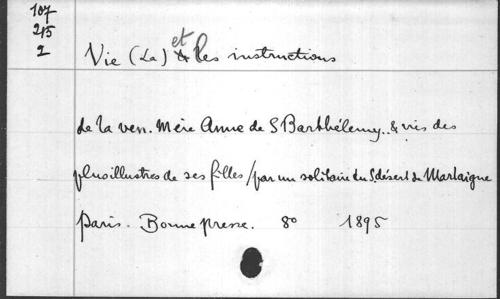 107
215
2
Vie (La) et les instructions
de la ven. Mère Anne de S Barthélemy.. & vies des
plus illustres de ses filles / par un solitaire du S. désert de Marlaigne
Paris. Bonne presse. 8° 1895